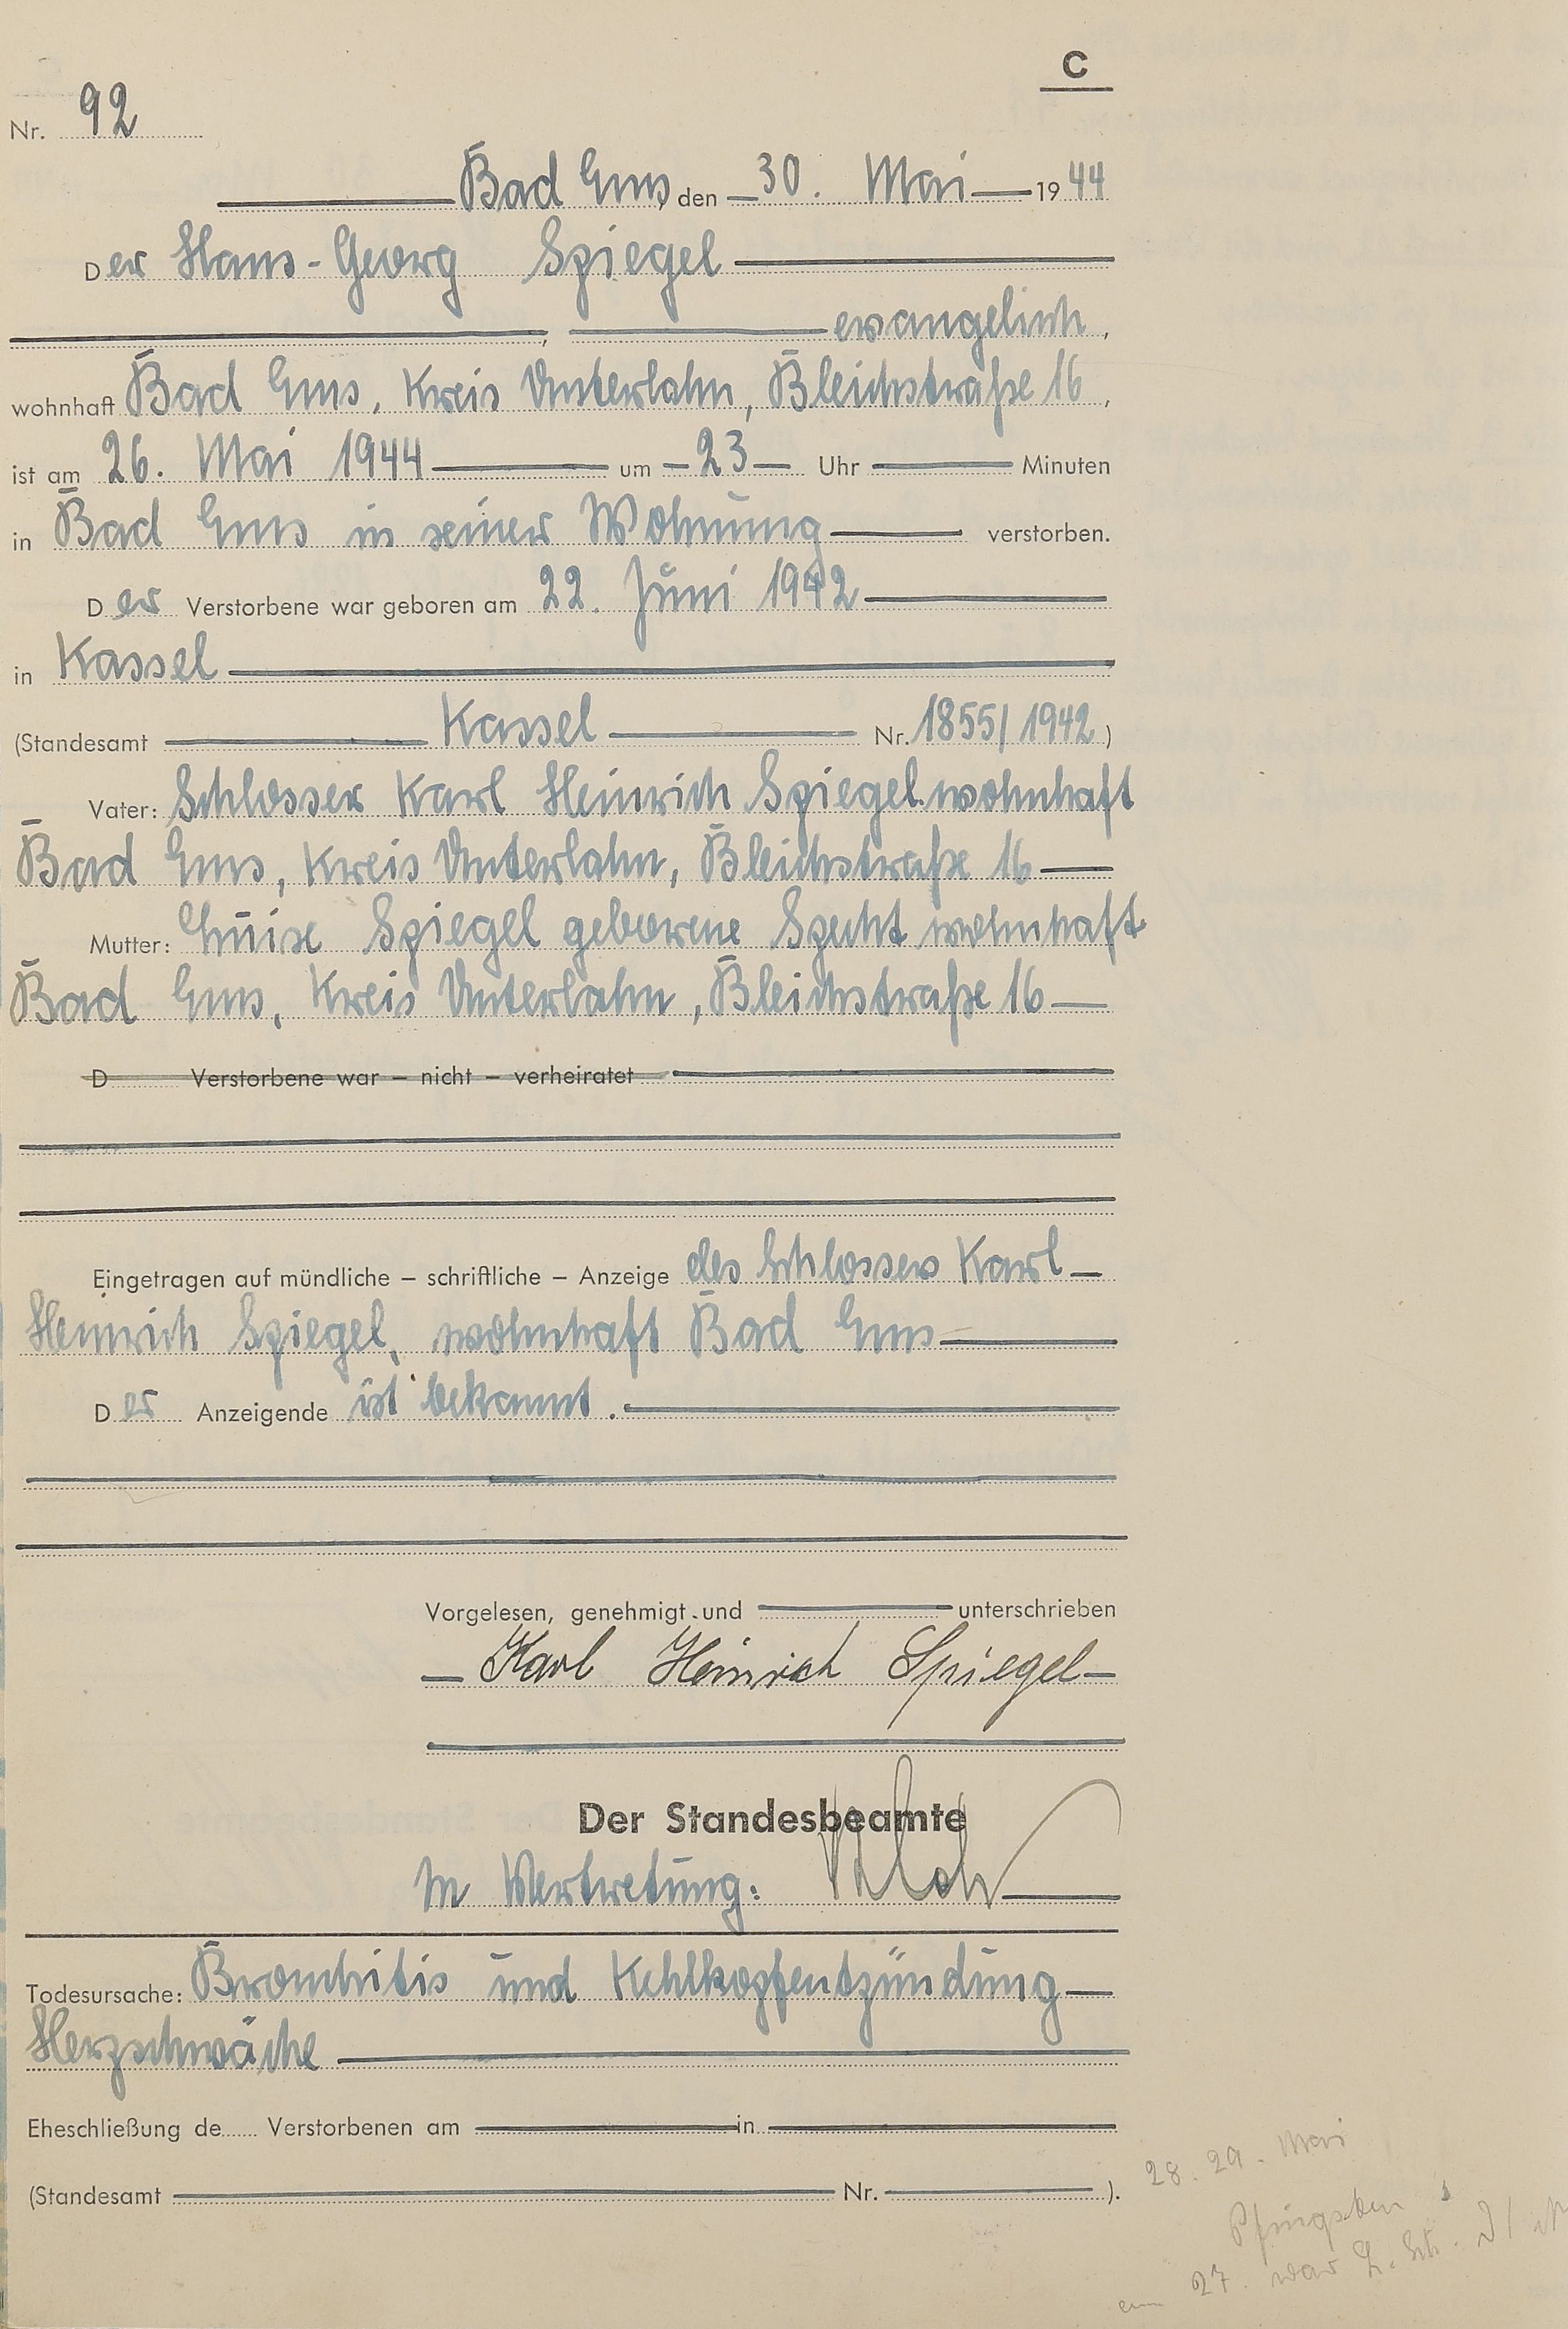 C
Nr. 92
Bad Ems, den 30. Mai 1944
Der Hans-Georg Spiegel
evangelisch,
wohnhaft Bad Ems, Kreis Unterlahn, Bleichstraße 16,
ist am 26. Mai 1944 um 23 Uhr Minuten
in Bad Ems in seiner Wohnung verstorben.
Der Verstorbene war geboren am 22. Juni 1942
in Kassel
(Standesamt Kassel Nr. 1855/1942)
Vater: Schlosser Karl Heinrich Spiegel wohnhaft
Bad Ems, Kreis Unterlahn, Bleichstraße 16
Mutter: Luise Spiegel geborene Specht wohnhaft
Bad Ems, Kreis Unterlahn, Bleichstraße 16
D Verstorbene war – nicht – verheiratet
Eingetragen auf mündliche – schriftliche – Anzeige des Schlossers Karl
Heinrich Spiegel, wohnhaft Bad Ems
Der Anzeigende ist bekannt.
Vorgelesen, genehmigt und unterschrieben
Karl Heinrich Spiegel
Der Standesbeamte
In Vertretung:
Todesursache: Bronchitis und Kehlkopfentzündung
Herzschwäche
Eheschließung de Verstorbenen am in
(Standesamt Nr. ).
28. 29. Mai
Pfingsten
am 27. war